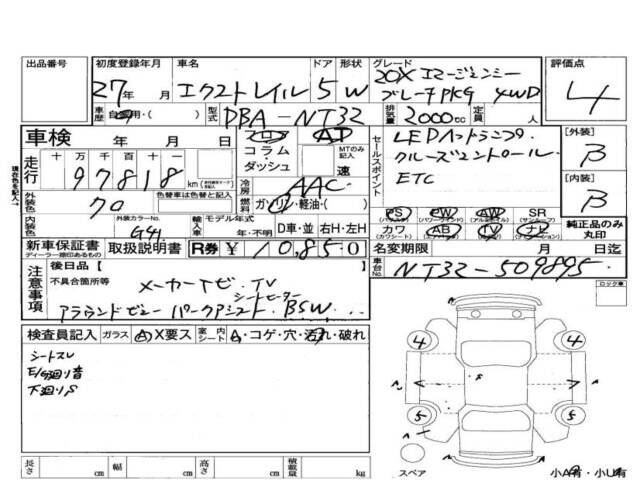 出品番号
初度登録年月 27年 月
車名 エクストレイル
ドア 形状 5W
グレード 20X エマージェンシー ブレーキPKG 4WD
評価点 4
車歴 自家用・( )
型式 DBA-NT32
排気量 2000cc
定員 人
車検 年 月 日
フロア AT
コラム・ダッシュ
MTのみ記入 速
セールスポイント
LEDヘッドランプ.
クルーズコントロール
ETC
[外装] B
[内装] B
走行 十万千百十一
97818 km
冷房 AAC
現在色を記入→
外装色 クロ
色替車は色替と記入
燃料 ガソリン・軽油・( )
内装色
外装カラーNo. G41
輸入車 モデル年式 年・不明
D車・並 右H・左H
PS PW AW SR
(パワステ) (パワーウィンドウ) (アルミホイル) (サンルーフ)
カワ AB TV ナビ
(カワシート) (エアバッグ)
純正品のみ丸印
新車保証書 ディーラー捺印あるもの
取扱説明書
R券 ¥10,850
名変期限 月 日迄
車台No. NT32-509895
注意事項
後日品 [ ]
不具合箇所等
メーカーナビ. TV
シートヒーター
アラウンドビュー パークアシスト. BSW...
ロック車
検査員記入 ガラス Ⓐ X要ス
室内シート A・コゲ・穴・汚れ・破れ
シートスレ
下廻りS
4 4
A A
S
5 5
A A
スペア
小A有・小U有
長さ cm 幅 cm 高さ cm 積載量 kg